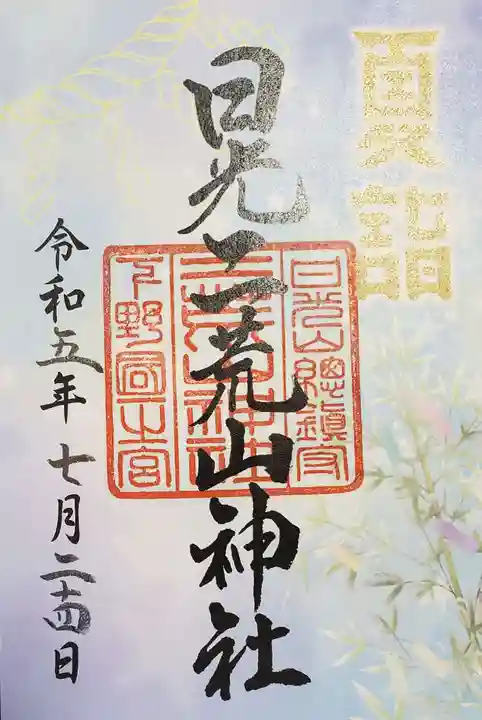 夏詣
日光二荒山神社
日光山總鎮守
二荒山神社
下野國一之宮
令和五年七月二十四日